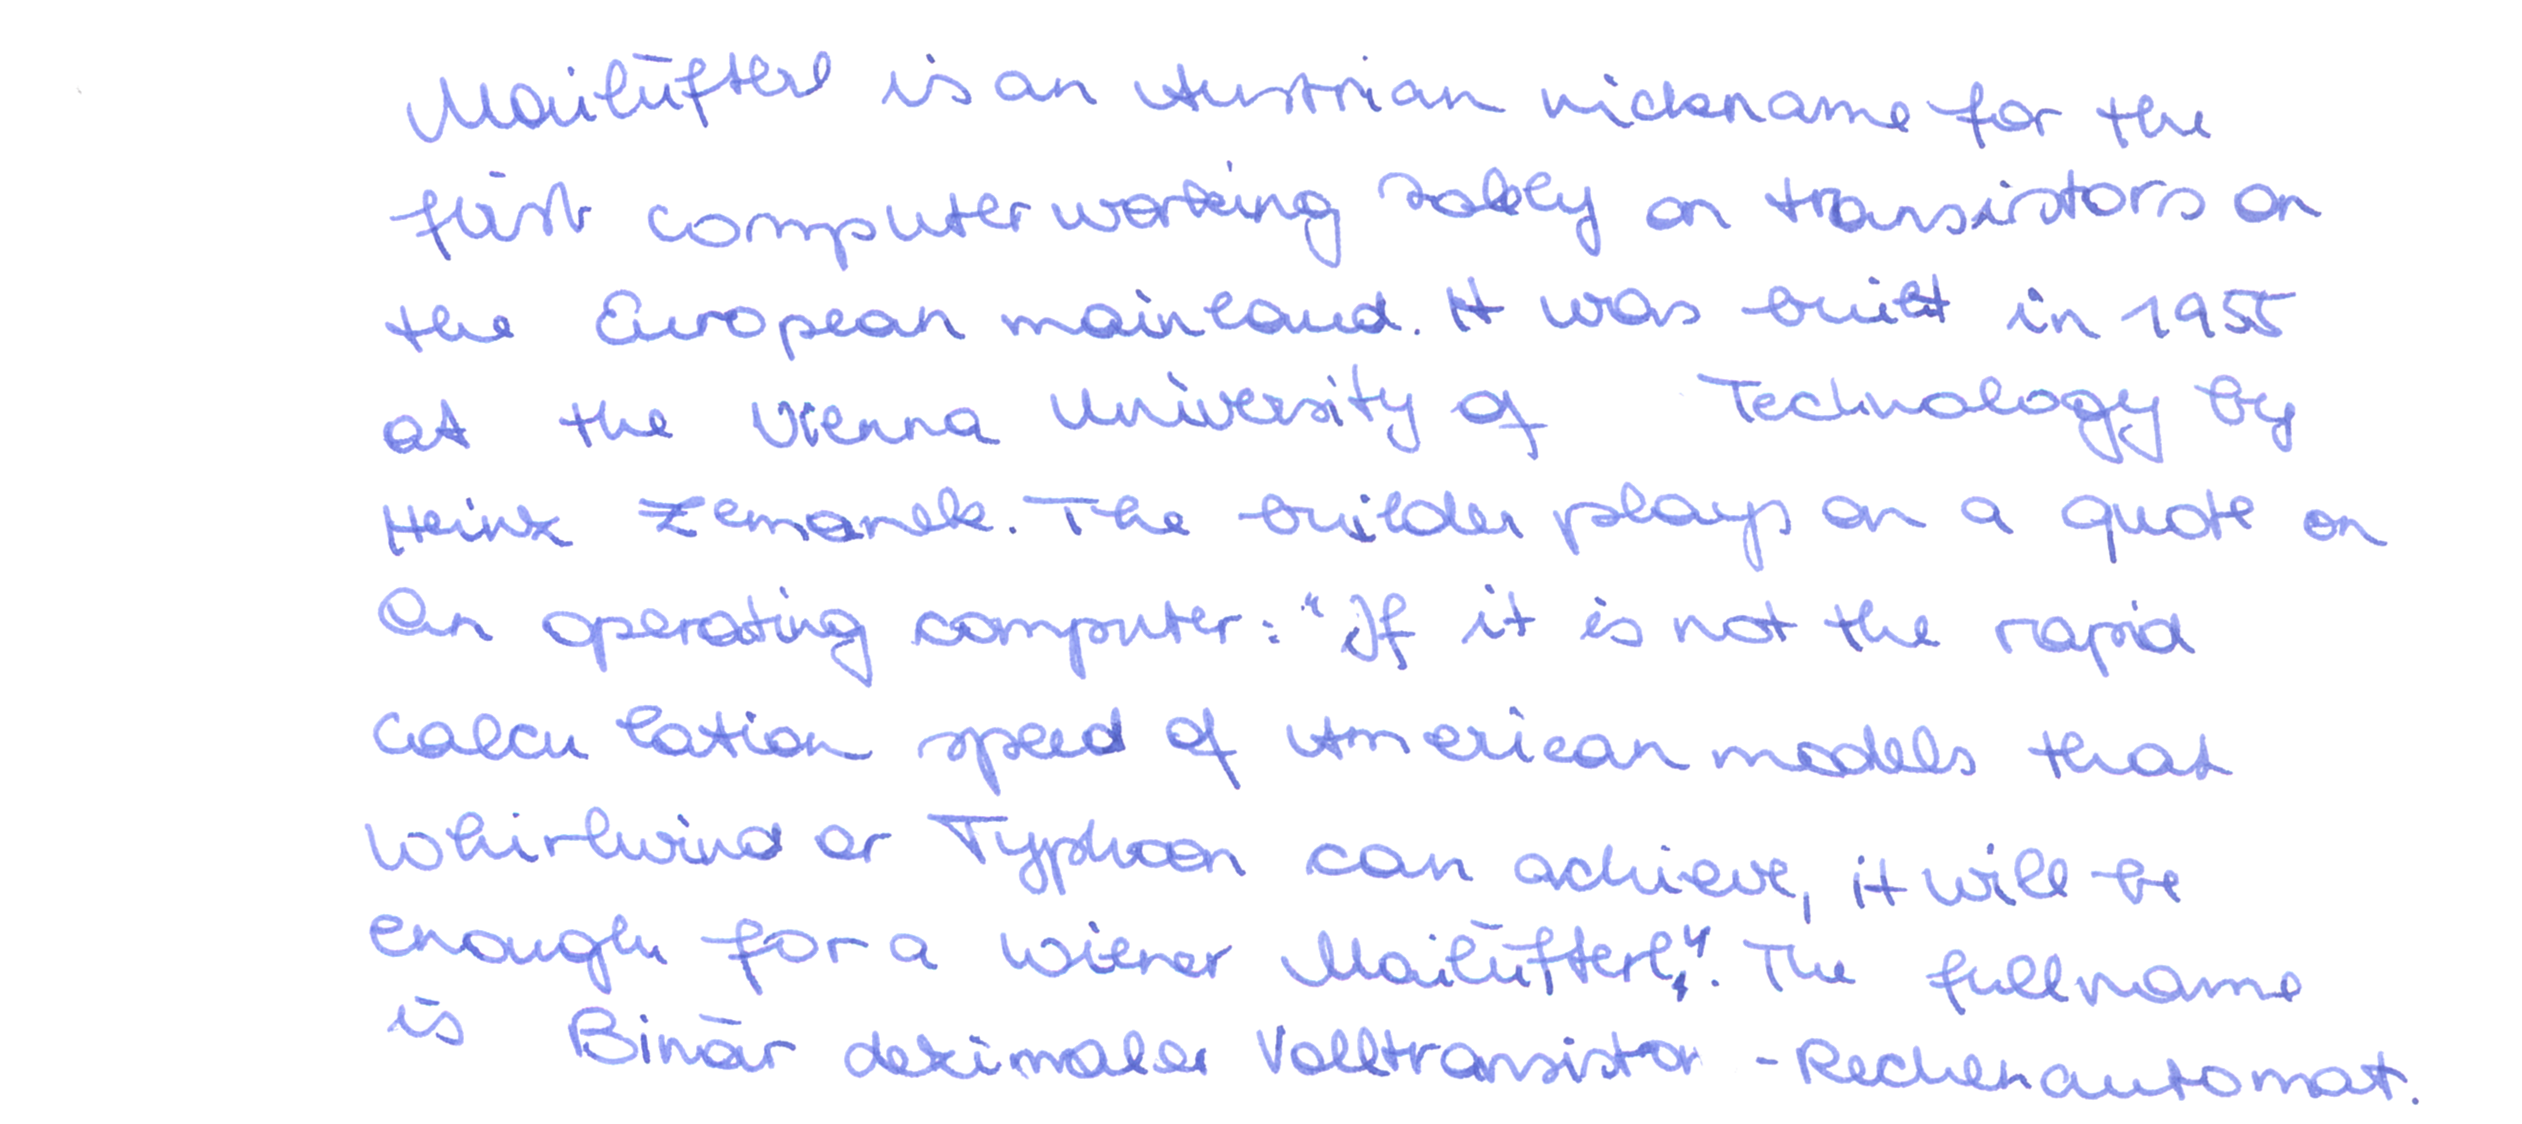 Mailüfterl is an Austrian nickname for the
first computer working solely on transistors on
the European mainland. It was built in 1955
at the Vienna University of Technology by
Heinz Zemanek. The builder plays on a quote on
an operating computer: "If it is not the rapid
calculation speed of American models that
Whirlwind or Typhoon can achieve, it will be
enough for a Wiener Mailüfterl". The fullname
is Binär dezimaler Volltransistor - Rechenautomat.